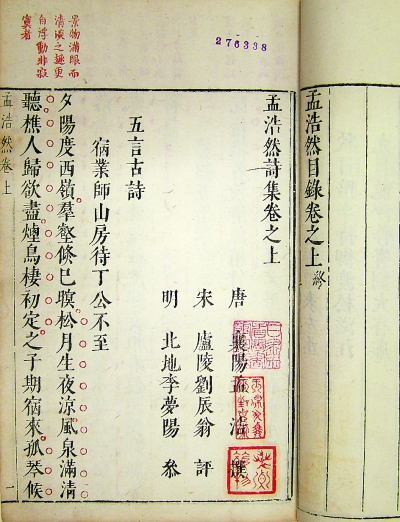 孟浩然目錄卷之上終
276338
孟浩然詩集卷之上
唐 襄陽孟浩然 撰
宋 廬陵劉辰翁 評
明 北地李夢陽 參
五言古詩
宿業師山房待丁公不至
夕陽度西嶺羣壑倏已暝松月生夜涼風泉滿清
聽樵人歸欲盡煙鳥棲初定之子期宿來孤琴候
景物滿眼而
清淑之趣更
自浮動非寂
寞者
孟浩然卷上
一